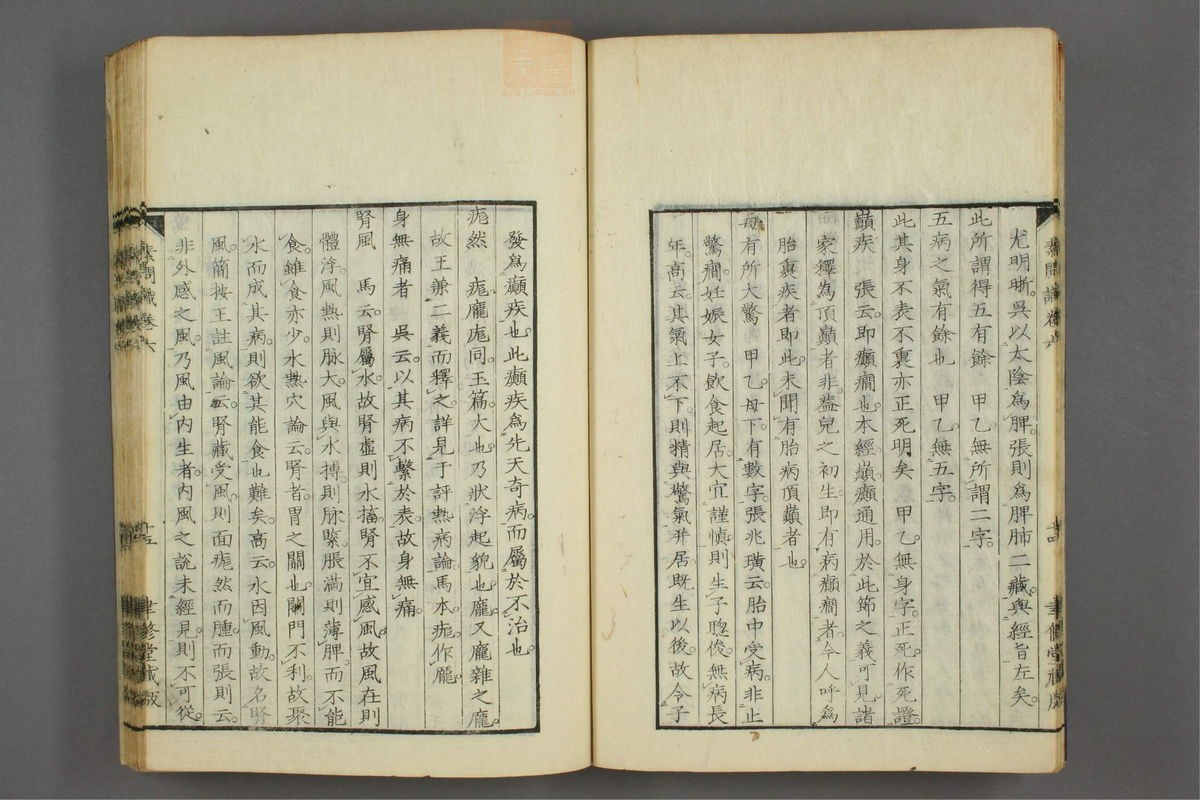 尤明晰。吳以太陰爲脾。張則爲脾肺二藏。與經旨左矣。
此所謂得五有餘　甲乙。無所謂二字。
五病之氣有餘也　甲乙。無五字。
此其身不表不裏亦正死明矣　甲乙。無身字。正死。作死證。
巓疾　張云。即癲癎也。本經巓癲通用。於此節之義可見。諸
家釋為頂巓者非。蓋兒之初生。即有病癲癎者。今人呼爲
胎裏疾者即此。未聞有胎病頂巓者也。
母有所大驚　甲乙。母下。有數字。張兆璜云。胎中受病。非止
驚癎。妊娠女子。飲食起居。大宜謹慎。則生子聰俊。無病長
年。高云。其氣上不下。則精與驚氣并居。既生以後。故令子
發爲癲疾也。此癲疾爲先天奇病。而屬於不治也。
痝然　痝龐庬同。玉篇。大也。乃狀浮起貌也。龐。又龐雜之龐。
故王兼二義而釋之。詳見于評熱病論。馬本。痝作龐。
身無痛者　吳云。以其病不繫於表。故身無痛。
腎風　馬云。腎屬水。故腎虛則水搐。腎不宜感風。故風在則
體浮。風熱則脉大。風與水搏。則脉緊。脹滿則薄脾。而不能
食。雖食亦少。水熱穴論云。腎者。胃之關也。關門不利。故聚
水而成其病。則欲其能食也難矣。高云。水因風動。故名腎
風。簡按王註風論云。腎藏受風。則面痝然而腫。而張則云。
非外感之風。乃風由内生者。内風之說未經見。則不可從。
素問識卷六
十四
聿修堂藏版
素問識卷六
十五
聿修堂藏版